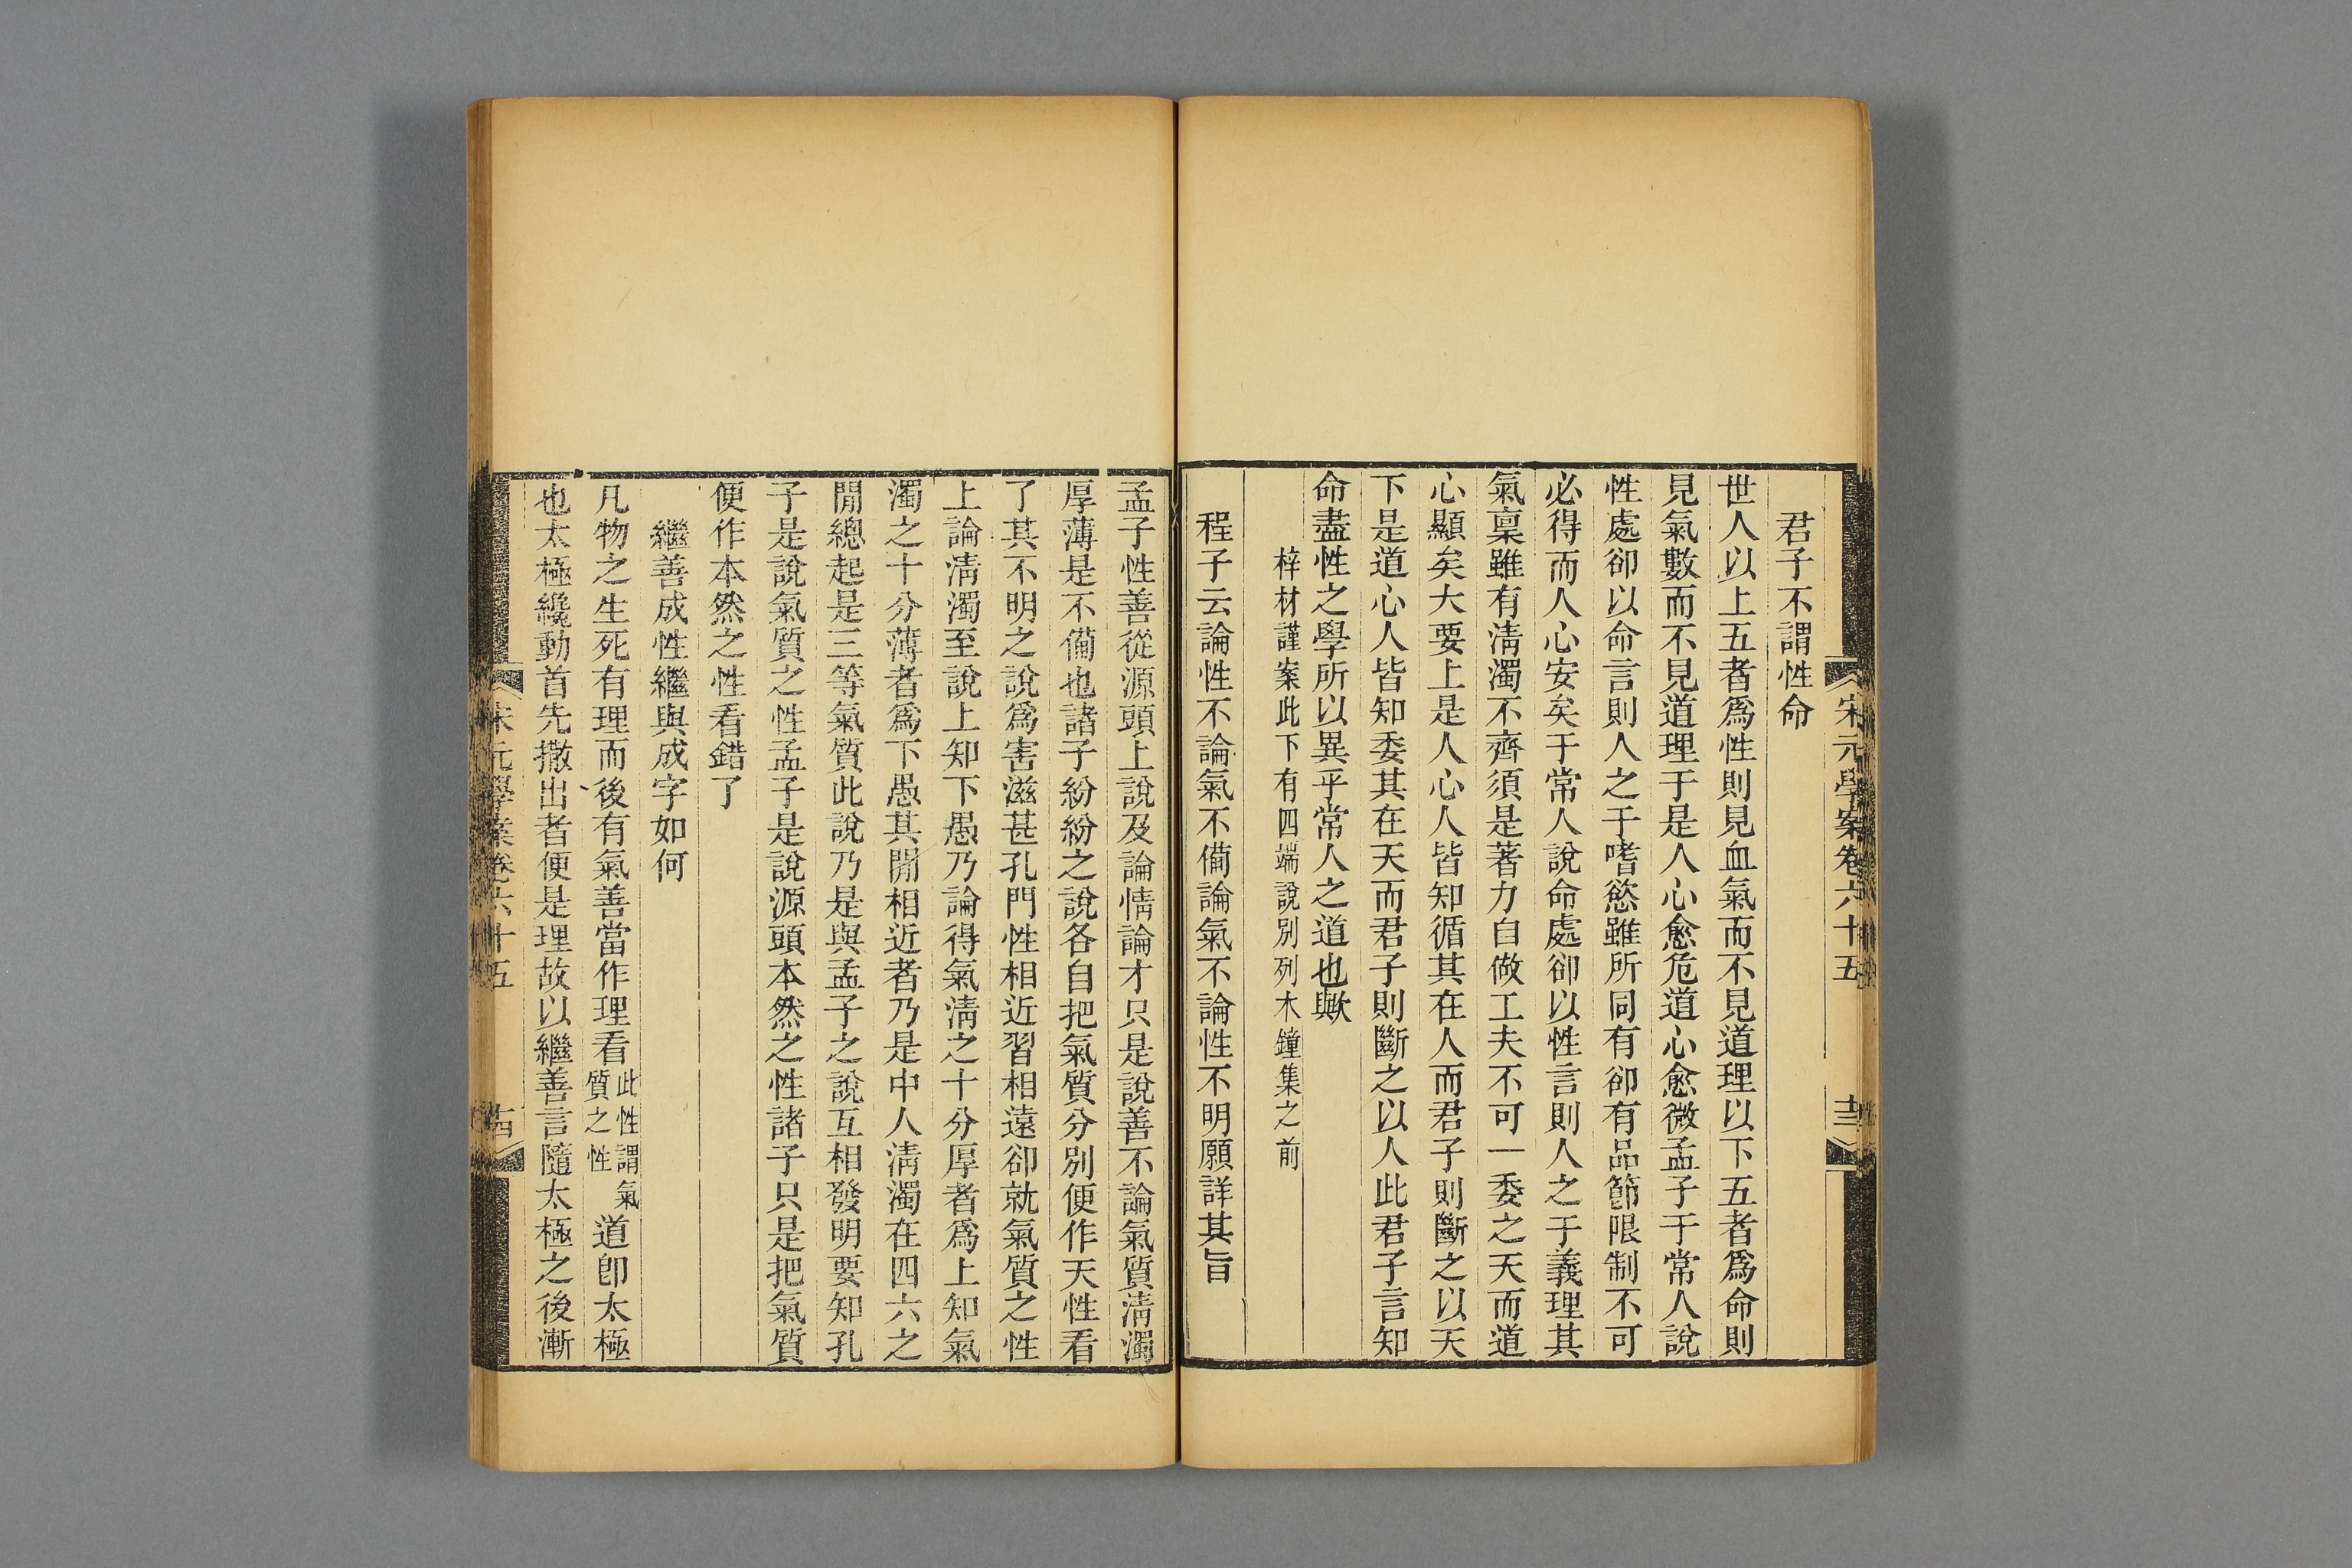 宋元學案卷六十五
十三
君子不謂性命
世人以上五者爲性則見血氣而不見道理以下五者爲命則
見氣數而不見道理于是人心愈危道心愈微孟子于常人說
性處卻以命言則人之于嗜慾雖所同有卻有品節限制不可
必得而人心安矣于常人說命處卻以性言則人之于義理其
氣稟雖有淸濁不齊須是著力自做工夫不可一委之天而道
心顯矣大要上是人心人皆知循其在人而君子則斷之以天
下是道心人皆知委其在天而君子則斷之以人此君子言知
命盡性之學所以異乎常人之道也歟
梓材謹案此下有四端說別列木鐘集之前
程子云論性不論氣不備論氣不論性不明願詳其旨
孟子性善從源頭上說及論情論才只是說善不論氣質淸濁
厚薄是不備也諸子紛紛之說各自把氣質分別便作天性看
了其不明之說爲害滋甚孔門性相近習相遠卻就氣質之性
上論淸濁至說上知下愚乃論得氣淸之十分厚者爲上知氣
濁之十分薄者爲下愚其閒相近者乃是中人淸濁在四六之
閒總起是三等氣質此說乃是與孟子之說互相發明要知孔
子是說氣質之性孟子是說源頭本然之性諸子只是把氣質
便作本然之性看錯了
繼善成性繼與成字如何
凡物之生死有理而後有氣善當作理看此性謂氣質之性道卽太極
也太極纔動首先撒出者便是理故以繼善言隨太極之後漸
宋元學案卷六十五
十四